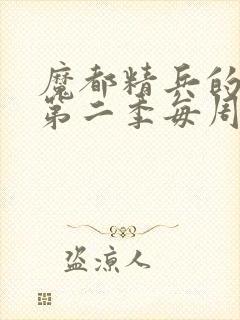 魔都精兵的
第二季每周
盗凉人